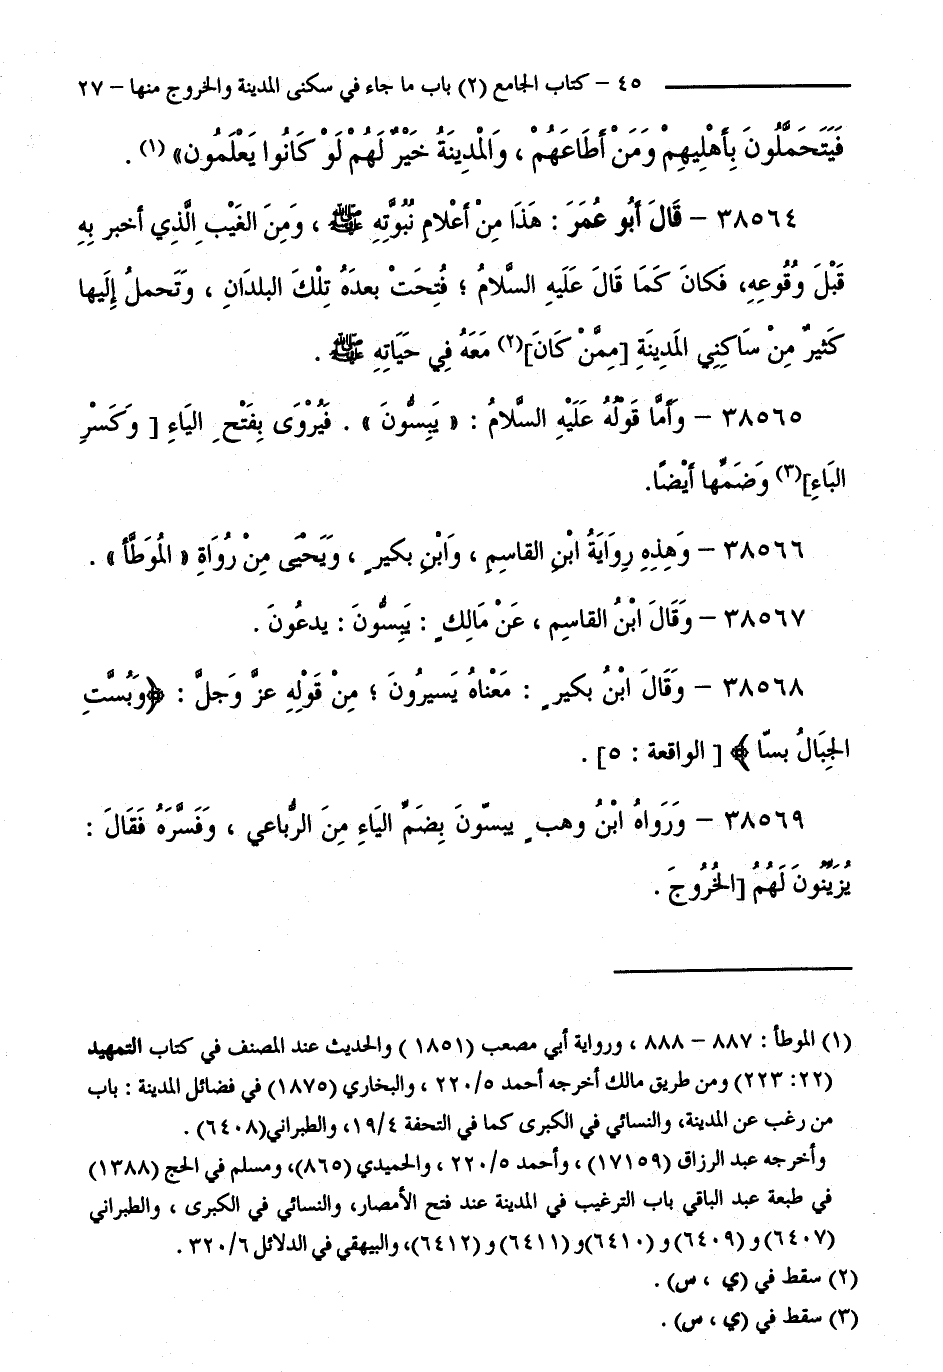 ٤٥ – كتاب الجامع (٢) باب ما جاء في سكنى المدينة والخروج منها – ٢٧
فَيَتَحَمَّلُونَ بِأَهْلِيهِمْ وَمَنْ أَطَاعَهُمْ ، وَالْمَدِينَةُ خَيْرٌ لَهُمْ لَوْ كَانُوا يَعْلَمُون» (١) .
٣٨٥٦٤ – قَالَ أَبُو عُمَرَ : هَذَا مِنْ أَعْلامِ نُبُوَّتِهِ ﷺ ، وَمِنَ الغَيْبِ الَّذِي أخبر بِهِ
قَبْلَ وُقُوعِهِ، فَكانَ كَمَا قَالَ عَلَيهِ السَّلامُ ؛ فُتِحَتْ بعدَهُ تِلْكَ البلدَانِ ، وَتَحملُ إِلَيها
كَثيرٌ مِنْ سَاكِنِي المَدِينَةِ [مِمَّنْ كَانَ](٢) مَعَهُ فِي حَيَاتِهِ ﷺ .
٣٨٥٦٥ – وَأَمَّا قَوْلُهُ عَلَيْهِ السَّلامُ : « يَبِسُّونَ » . فَيُرْوَى بِفَتْحِ اليَاءِ [ وَكَسْرِ
البَاءِ](٣) وَضَمِّها أيْضًا.
٣٨٥٦٦ – وَهَذِهِ رِوَايَةُ ابْنِ القاسِمِ ، وَابْنِ بكيرٍ ، وَيَحْيَى مِنْ رُوَاةِ « الْمُوَطَّأ » .
٣٨٥٦٧ – وَقَالَ ابْنُ القاسِم ، عَنْ مَالِكٍ : يَبِسُّونَ : يدعُونَ .
٣٨٥٦٨ – وَقَالَ ابْنُ بكيرٍ : مَعْنَاهُ يَسيرُونَ ؛ مِنْ قَوْلِهِ عزَّ وَجلَّ : ﴿وَبُسَّتِ
الجِبَالُ بسّا ﴾ [ الواقعة : ٥] .
٣٨٥٦٩ – وَرَوَاهُ ابْنُ وهبٍ يبسّونَ بِضَمِّ اليَاءِ مِنَ الرُّباعي ، وَفَسَّرَهُ فَقَالَ :
يُزَيِّنُونَ لَهُمُ [الخُرُوجَ .
(١) الموطأ : ٨٨٧ – ٨٨٨ ، ورواية أبي مصعب (١٨٥١ ) والحديث عند المصنف في كتاب التمهيد
(٢٢: ٢٢٣) ومن طريق مالك أخرجه أحمد ٢٢٠/٥ ، والبخاري (١٨٧٥) في فضائل المدينة : باب
من رغب عن المدينة، والنسائي في الكبرى كما في التحفة ١٩/٤، والطبراني(٦٤٠٨) .
وأخرجه عبد الرزاق (١٧١٥٩) ، وأحمد ٢٢٠/٥ ، والحميدي (٨٦٥)، ومسلم في الحج (١٣٨٨)
في طبعة عبد الباقي باب الترغيب في المدينة عند فتح الأمصار، والنسائي في الكبرى ، والطبراني
(٦٤٠٧) و (٦٤٠٩) و (٦٤١٠)و (٦٤١١) و (٦٤١٢)، والبيهقي في الدلائل ٣٢٠/٦ .
(٢) سقط في (ي ، س) .
(٣) سقط في (ي ، س) .